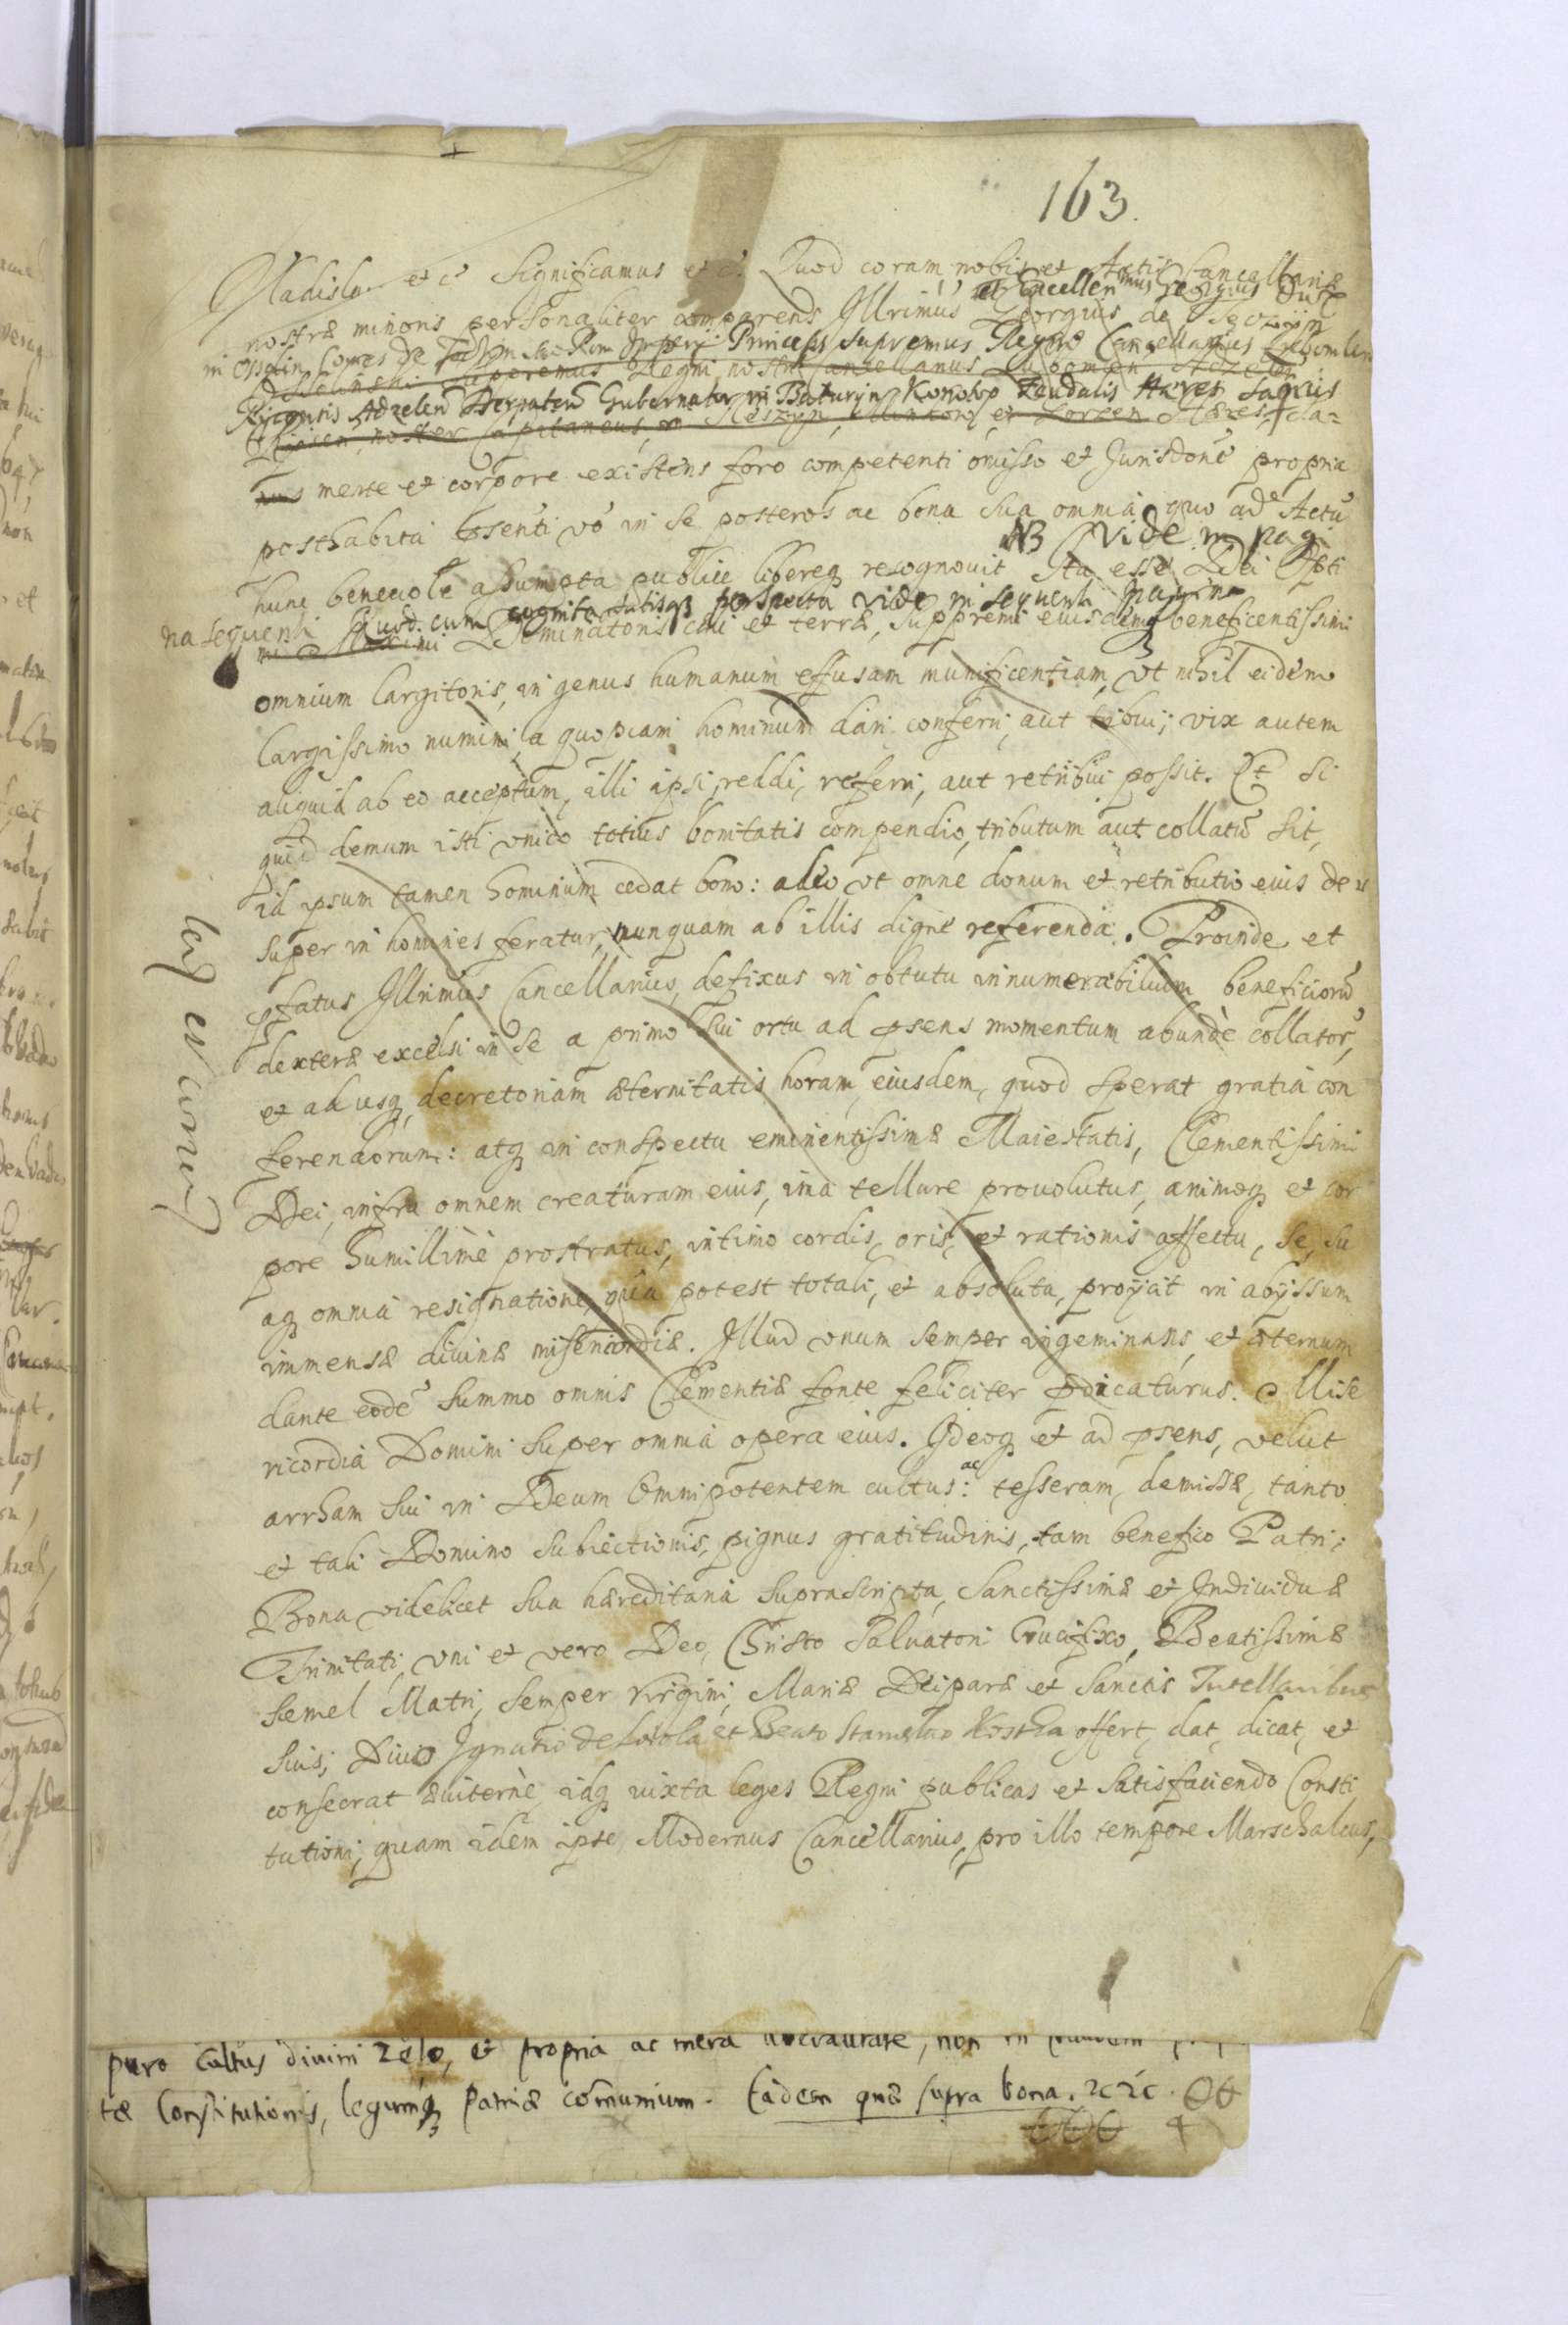 163.
Vladislaus etc Significamus etc. Quod coram nobis et Actis Cancellariæ
et Excellenmus Georgius Dux
nostræ minoris personaliter comparens Illrimus Georgius de
in Ossolin Comes de Supremus Regni Cancellarius Lubomlen
Ossolinski Supremus Regni nostri Cancellarius Lubomlen Adzelen
Ricgensis Adzelen Derpaten Gubernator in Baturyn Konotop Feudalis Hæres Sanus
noster Capitaneus, in et Hæres,
mente et corpore existens foro competenti omisso et Jurisdone propria
posthabita psenti vo in se posteros ac bona sua omnia quo ad Actu
NB Vide in pagi
hunc beneuole assumpta publice libereq recognouit Ita esse Dei Opti
na sequenti Quod cum cognita satisq perspecta vide in sequenti pagina
mi Maximi Dominatoris cæli et terræ, suppremi eiusdemq beneficentissimi
omnium largitoris, in genus humanum effusam munificentiam, vt nihil eidem
largissimo numini, a quopiam hominum dari, conferri, aut tribui; vix autem
aliquid ab eo acceptum, illi ipsi, reddi, referri, aut retribui possit. Et si
quid demum isti vnico totius bonitatis compendio, tributum aut collatu sit,
id ipsum tamen hominum cedat bono: adeo vt omne donum et retributio eius de
super in homines feratur, nunquam ab illis digne referenda. Proinde et
pfatus Illrimus Cancellarius, defixus in obtutu innumerabilium beneficioru
dexteræ excelsi in se a primo sui ortu ad psens momentum abundè collator,
et ad usq decretoriam æternitatis horam, eiusdem, quod sperat gratia con
ferendorum: atq in conspectu eminentissimæ Maiestatis, Clementissimi
Dei, infra omnem creaturam eius, ima tellure prouolutus, animoq et cor
pore humillimè prostratus, intimo cordis, oris, et rationis affectu, se, su
aq omnia resignatione, qua potest totali, et absoluta, proijcit in abyssum
immensæ diuinæ misericordiæ. Illud vnum semper ingeminans, et æternum
dante eode summo omnis Clementiæ fonte feliciter pdicaturus. Mise
ricordia Domini super omnia opera eius. Ideoq et ad psens, velut
arrham sui in Deum Omnipotentem cultus: ac tesseram, demissæ, tanto
et tali Domino subiectionis, pignus gratitudinis, tam benefico Patri;
Bona videlicet sua hæreditaria suprascripta, Sanctissimæ et Indiuiduæ
Trinitati, vni et vero Deo, Christo Saluatori Crucifixo, Beatissimæ
semel Matri, semper Virgini, Mariæ Deiparæ et Sanctis Tutellaribus
suis, Diuo Ignatio de Loiola et Beato Stanislao Kostka offert, dat, dicat, et
consecrat æuiternè, idq iuxta leges Regni publicas et satisfaciendo Consti
tutioni, quam idem ipse Modernus Cancellarius, pro illo tempore Marschalcus,
puro cultus diuini zelo, et propria ac mera non in
tæ Constitutionis, legumq Patriæ comunium. Eadem quæ supra bona. etc etc.